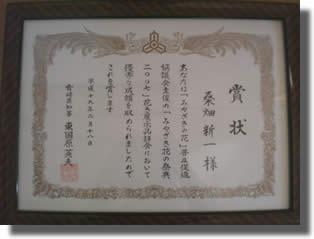 賞状
桑畑新一様
あなたは「みやざきの花」普及促進
協議会主催の「みやざき花の祭典
二〇〇七」花き展示品評会において
優秀な成績を収められましたので
これを賞します
平成十九年二月十八日
宮崎県知事 東国原英夫